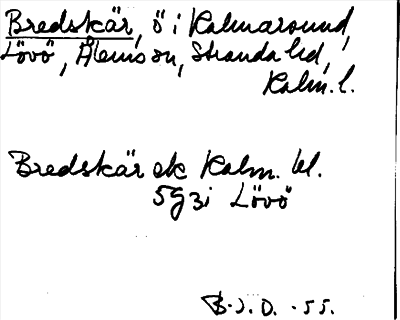 Bredskär, ö i Kalmarsund,
Lövö, Ålems sn, Stranda hd,
Kalm. l.
Bredskär ek Kalm. bl.
5g3i Lövö
B.J.O. -55.